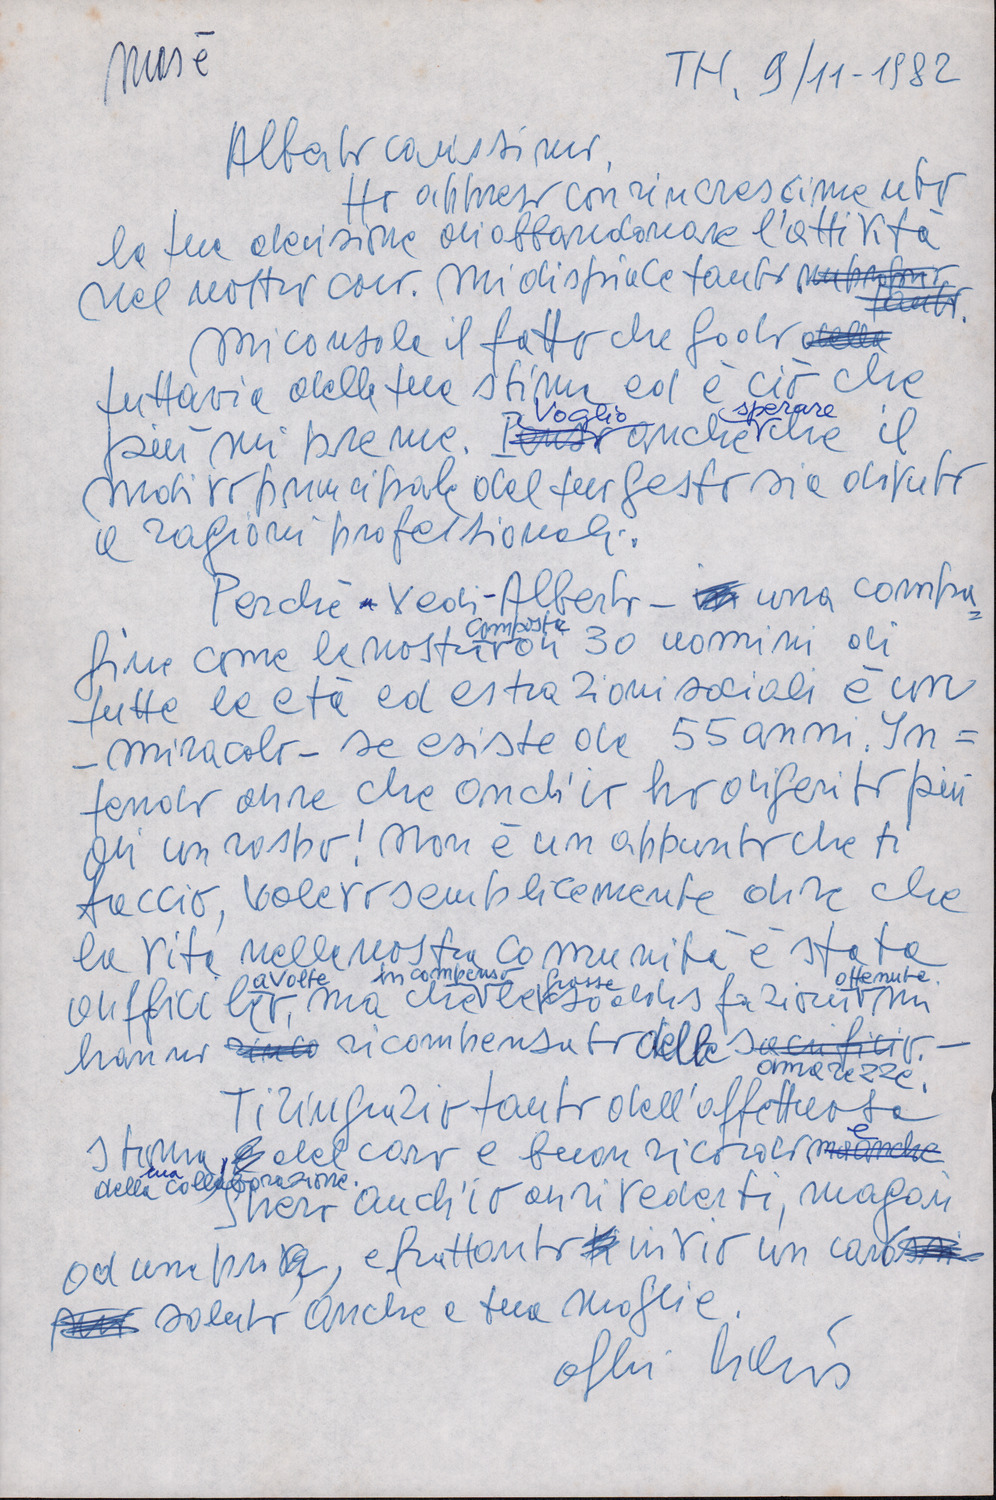 Mosè
TH, 9/11-1982
Alberto carissimo,
Ho appreso con rincrescimento
la tua decisione di abbandonare l'attività
nel nostro coro. Mi dispiace tanto
tanto.
Mi consola il fatto che godo della
tuttavia della tua stima ed è ciò che
Voglio sperare
più mi preme. Penso anche che il
motivo principale del tuo gesto sia dovuto
a ragioni professionali.
Perchè - Vedi - Alberto - una compa=
composta
gine come la nostra di 30 uomini di
tutte le età ed estrazioni sociali è un
- miracolo - se esiste da 55 anni. In=
tendo dire che anch'io ho digerito più
di un rospo! Non è un appunto che ti
faccio, volevo semplicemente dire che
la vita nella nostra comunità è stata
a volte in compenso grosse ottenute.
difficile, ma che le soddisfazioni mi
hanno ricompensato delle sacrificio. -
amarezze.
Ti ringrazio tanto dell'affettuosa
e
stima, del caro e buon ricordo ma anche
della tua collaborazione.
Spero anch'io di rivederti, magari
ad una prova, e frattanto invio un caro
saluto anche a tua moglie.